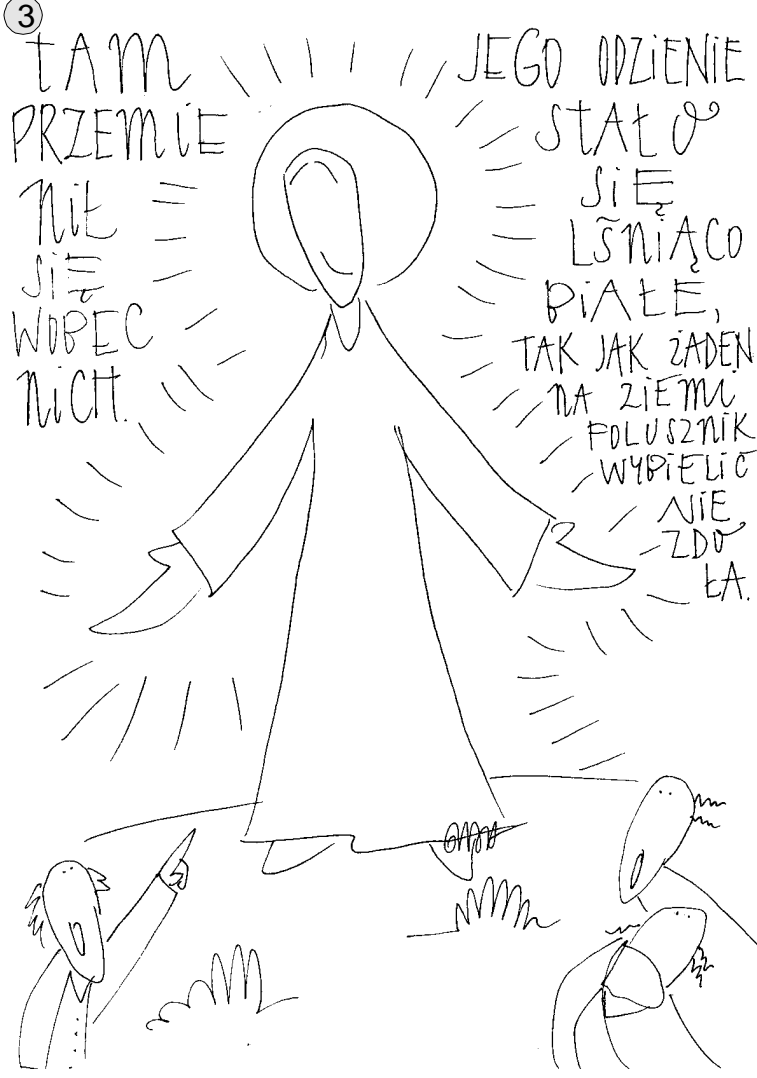 3
TAM
PRZEMIE
NIŁ
SIĘ
WOBEC
NICH.
JEGO ODZIENIE
STAŁO
SIĘ
LŚNIĄCO
BIAŁE,
TAK JAK ŻADEN
NA ZIEMI
FOLUSZNIK
WYBIELIĆ
NIE
ZDO
ŁA.